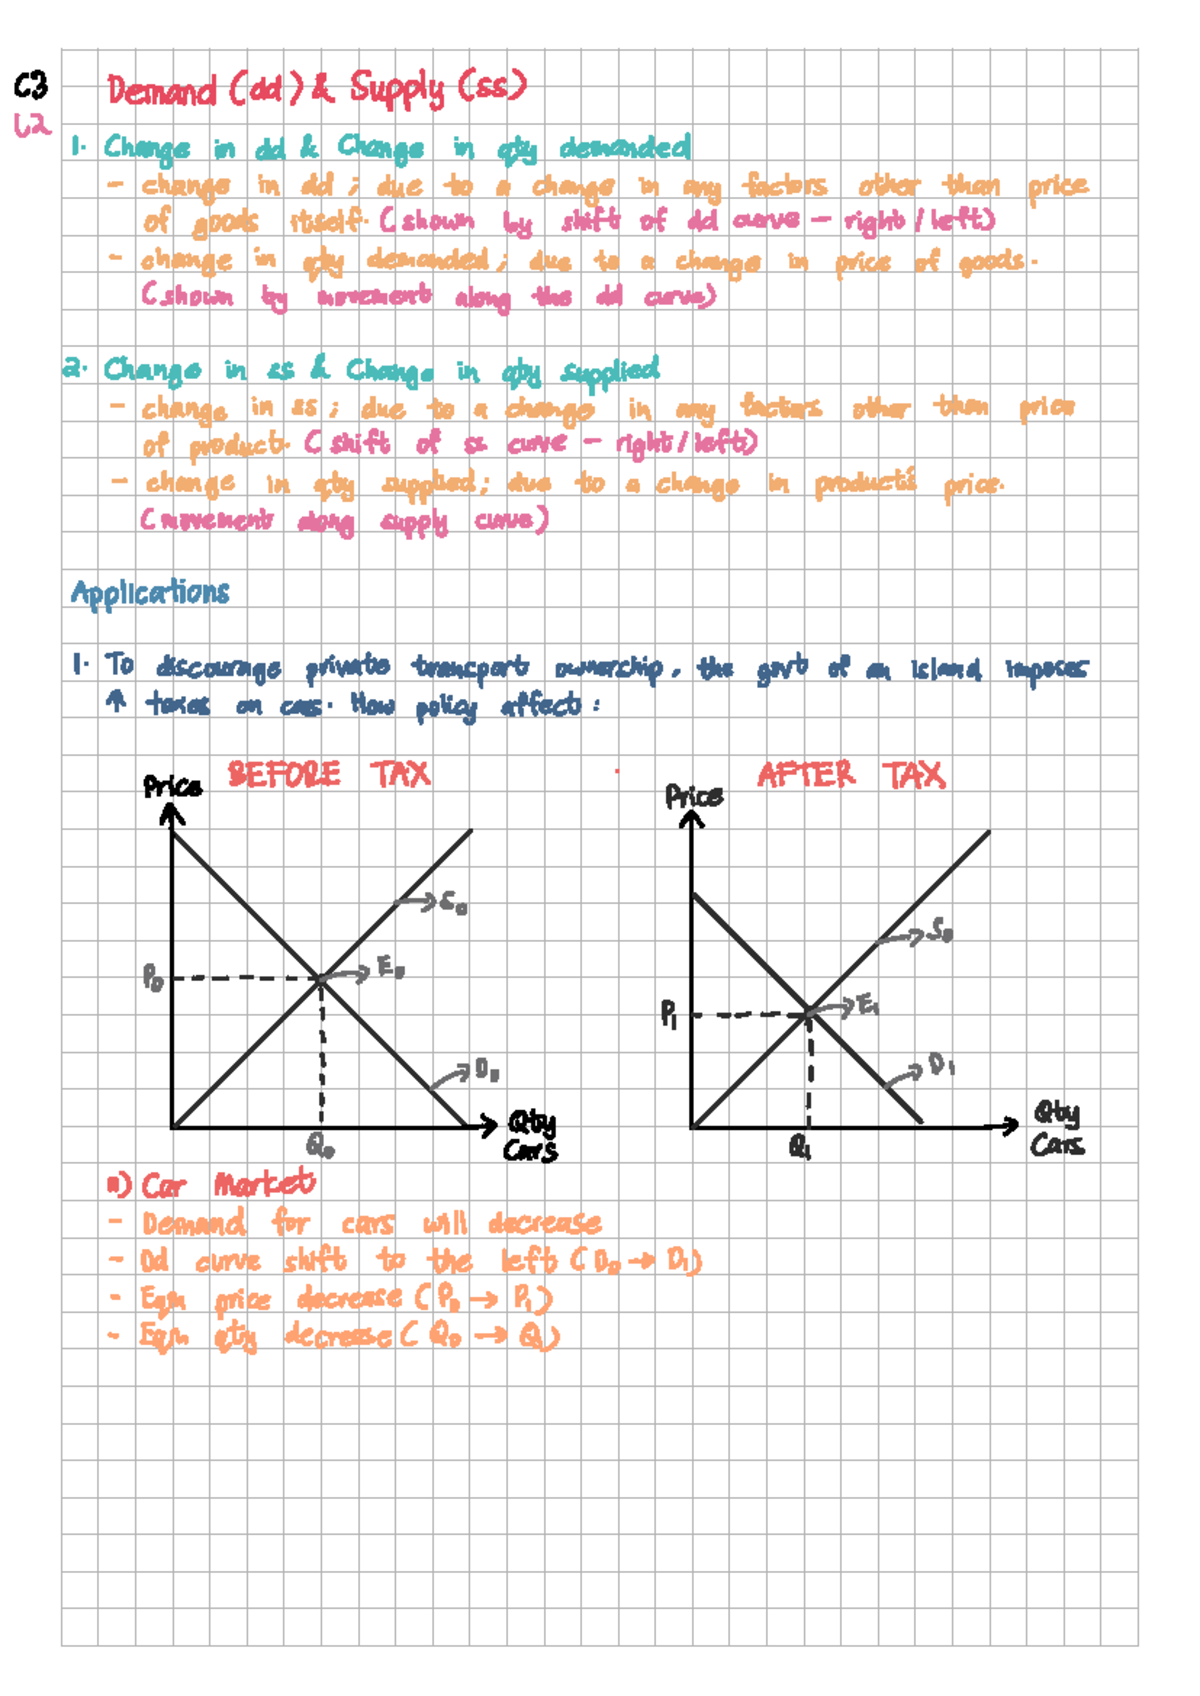 C3
L2
Demand (dd) & Supply (ss)
1. Change in dd & Change in qty demanded
- change in dd ; due to a change in any factors other than price
of goods itself. (shown by shift of dd curve - right / left)
- change in qty demanded ; due to a change in price of goods.
(shown by movement along the dd curve)
2. Change in ss & Change in qty supplied
- change in ss ; due to a change in any factors other than price
of product. (shift of ss curve - right / left)
- change in qty supplied ; due to a change in product's price.
(movement along supply curve)
Applications
1. To discourage private transport ownership, the govt of an island imposes
↑ taxes on cars. How policy affect :
BEFORE TAX
Price
S₀
E₀
P₀
D₀
Qty
Cars
Q₀
AFTER TAX
Price
S₀
E₁
P₁
D₁
Qty
Cars
Q₁
a) Car Market
- Demand for cars will decrease
- Dd curve shift to the left (D₀ → D₁)
- Eqm price decrease (P₀ → P₁)
- Eqm qty decrease (Q₀ → Q₁)